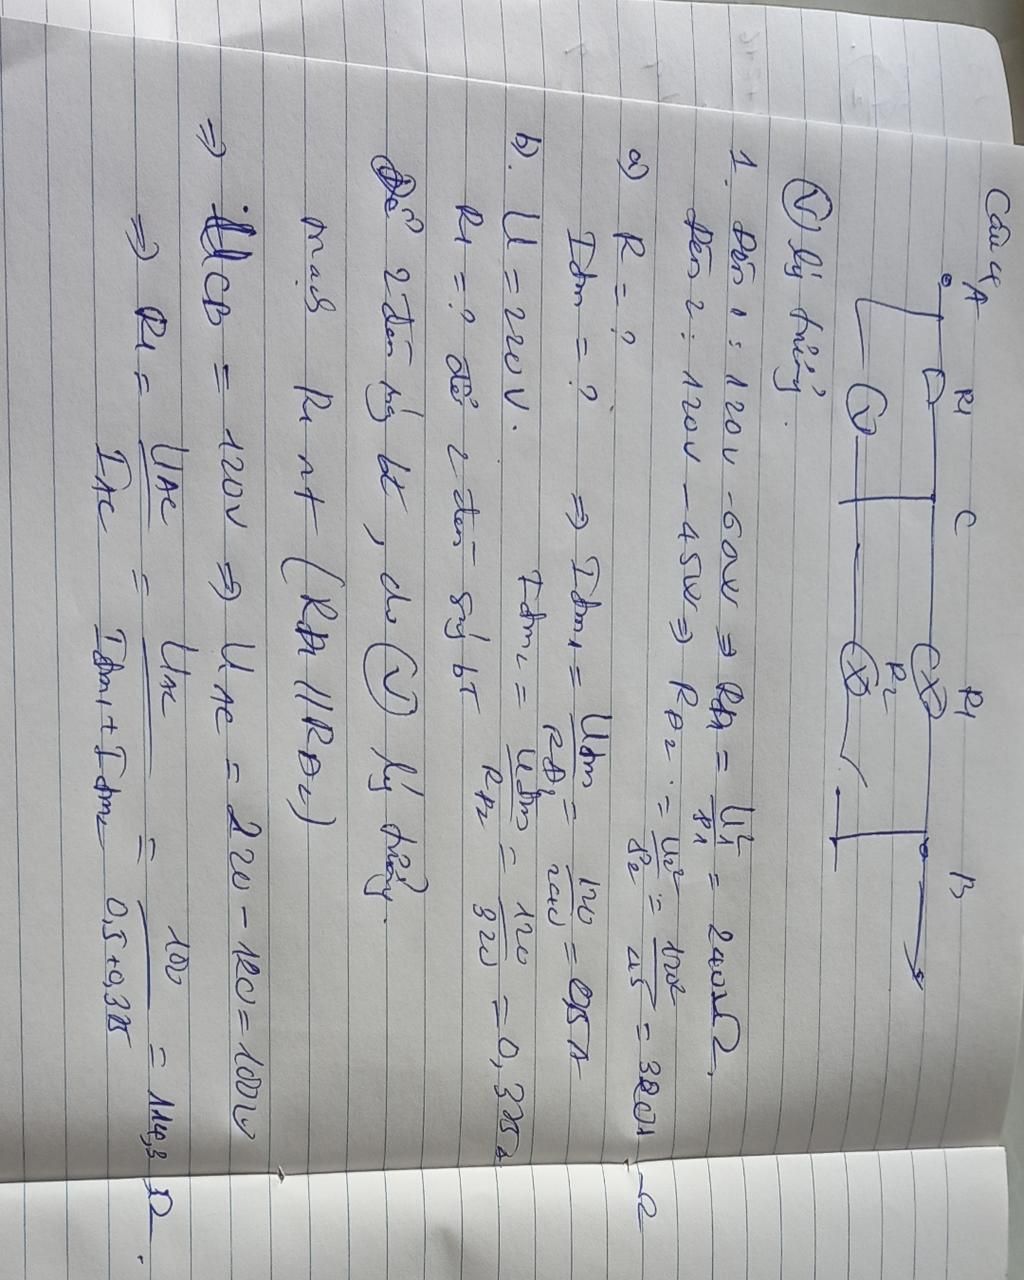 Câu 4
A R1 C R1 B
V R2
(V) lý tưởng.
1. Đèn 1 : 120V - 60W ⇒ RĐ1 = U1²/P1 = 240Ω.
Đèn 2 : 120V - 45W ⇒ RĐ2 = U2²/P2 = 120²/45 = 320 Ω
a) R = ?
Iđm = ? ⇒ Iđm1 = Uđm/RĐ1 = 120/240 = 0,5 A
Iđm2 = Uđm/RĐ2 = 120/320 = 0,375 A
b). U = 220V.
R1 = ? để 2 đèn sáng bt
Để 2 đèn sáng bt, do (V) lý tưởng.
mạch R1 nt (RĐ1 // RĐ2)
⇒ UCB = 120V ⇒ UAC = 220 - 120 = 100V
⇒ R1 = UAC/IAC = UAC/(Iđm1 + Iđm2) = 100/(0,5 + 0,375) = 114,3 Ω.